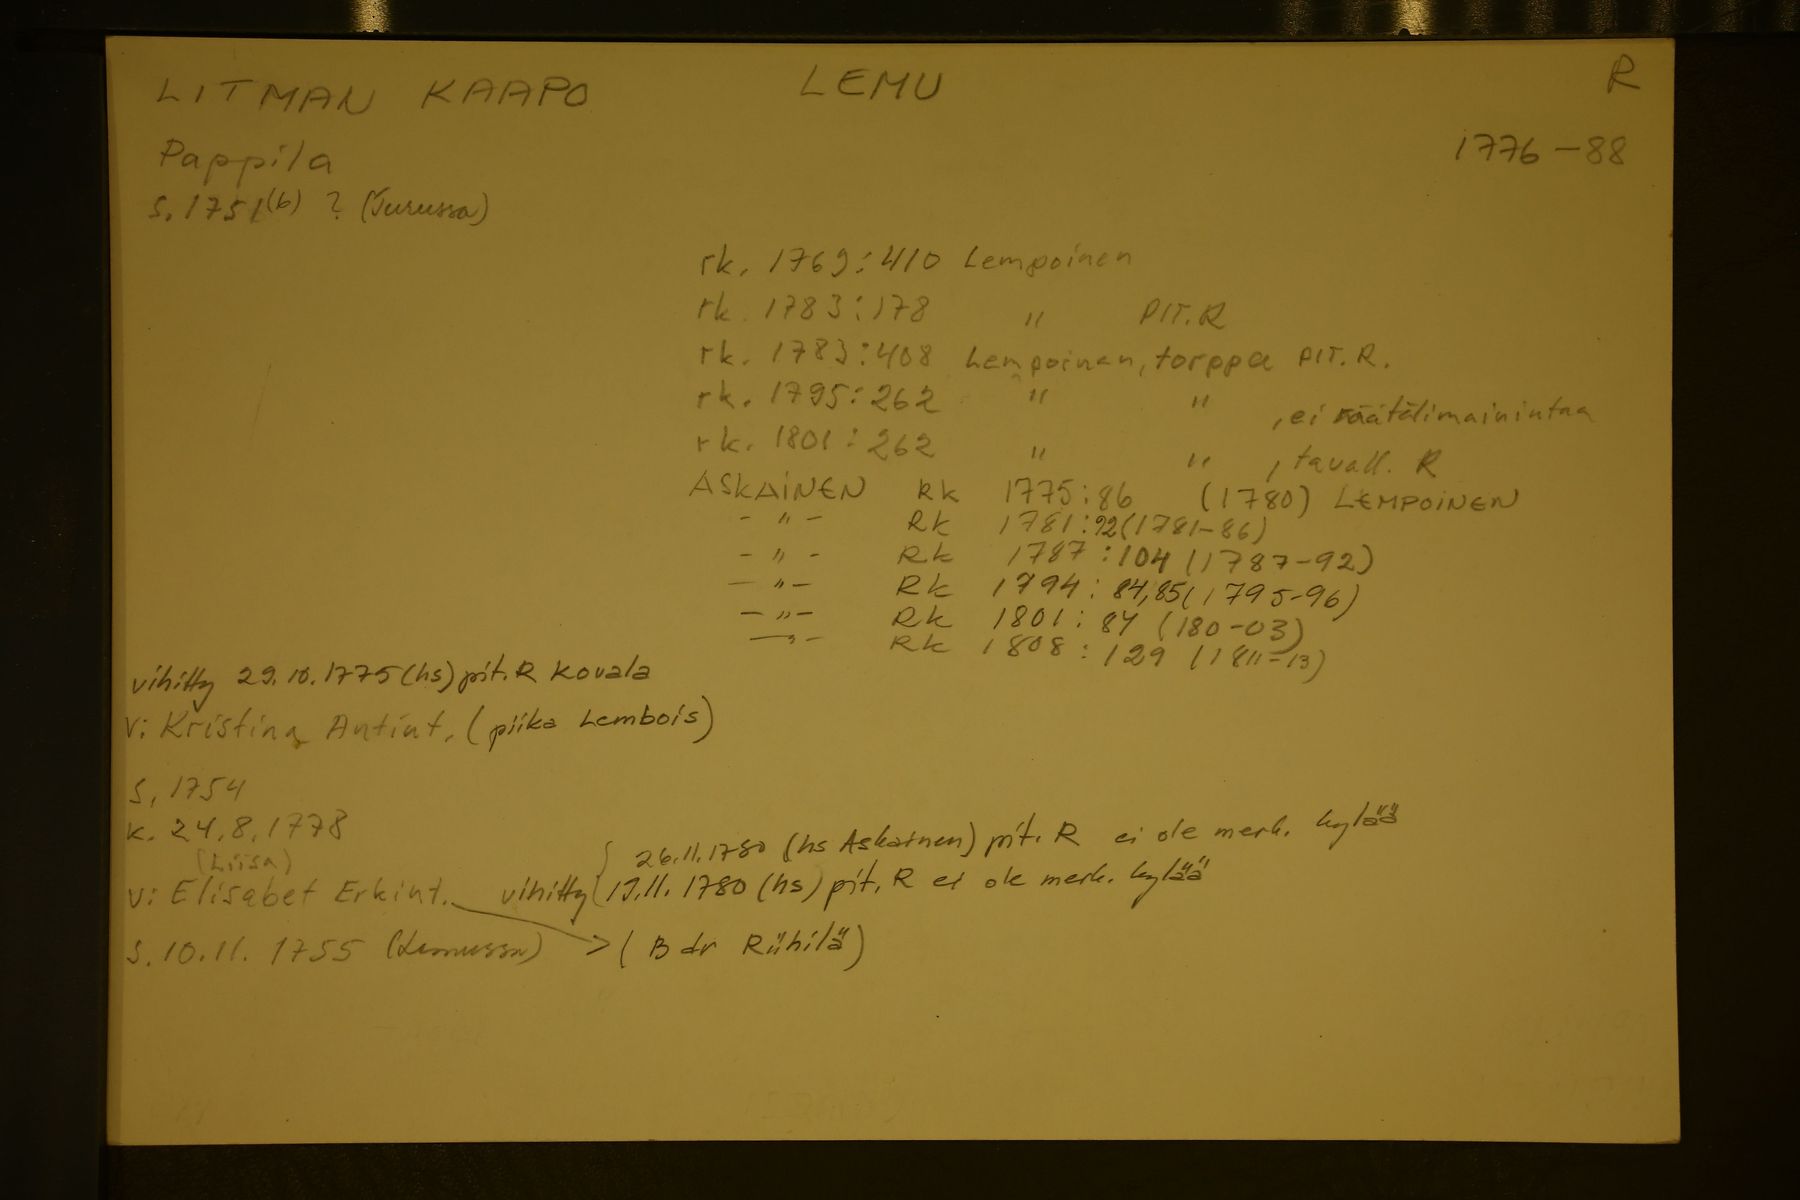 LITMAN KAAPO LEMU R
Pappila 1776-88
s. 1751(6) ? (Turussa)
rk. 1769:410 Lempoinen
rk. 1783:178 " PIT.R
rk. 1783:408 Lempoinen, torppa PIT.R.
rk. 1795:262 " " , ei räätälimainintaa
rk. 1801:262 " " , tavall. R
ASKAINEN Rk 1775:86 (1780) LEMPOINEN
- " - Rk 1781:92 (1781-86)
- " - Rk 1787:104 (1787-92)
- " - Rk 1794:84,85 (1795-96)
- " - Rk 1801:84 (180-03)
- " - Rk 1808:129 (1811-13)
vihitty 29.10.1775 (hs) pit.R Kovala
v: Kristina Antint. (piika Lembois)
s. 1754
k. 24.8.1778
(Liisa) { 26.11.1780 (hs Askainen) pit. R ei ole merk. kylää
v: Elisabet Erkint. vihitty { 19.11.1780 (hs) pit. R ei ole merk. kylää
s. 10.11.1755 (Lemussa) > (B dr Riihilä)